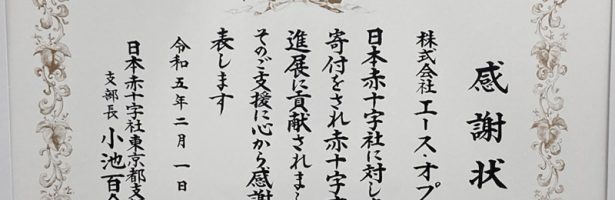 感謝状
株式会社 エース・オプ
日本赤十字社に対し
寄付をされ赤十字
進展に貢献されまし
そのご支援に心から感謝
表します
令和五年二月一日
日本赤十字社東京都支
支部長 小池百合